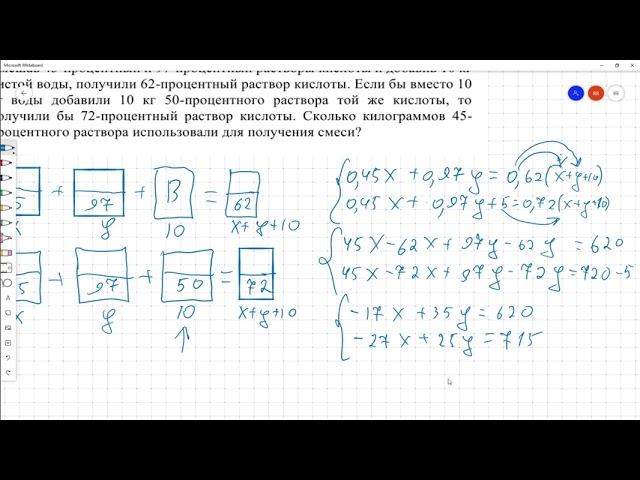 Microsoft Whiteboard
45-процентный и 97-процентный растворы кислоты и добавив 10 кг
истой воды, получили 62-процентный раствор кислоты. Если бы вместо 10
воды добавили 10 кг 50-процентного раствора той же кислоты, то
олучили бы 72-процентный раствор кислоты. Сколько килограммов 45-
роцентного раствора использовали для получения смеси?
5 + 97 + В = 62
y 10 x+y+10
5 + 97 + 50 = 72
x y 10 x+y+10
0,45x + 0,97y = 0,62(x+y+10)
0,45x + 0,97y + 5 = 0,72(x+y+10)
45x - 62x + 97y - 62y = 620
45x - 72x + 97y - 72y = 720 - 5
-17x + 35y = 620
-27x + 25y = 715